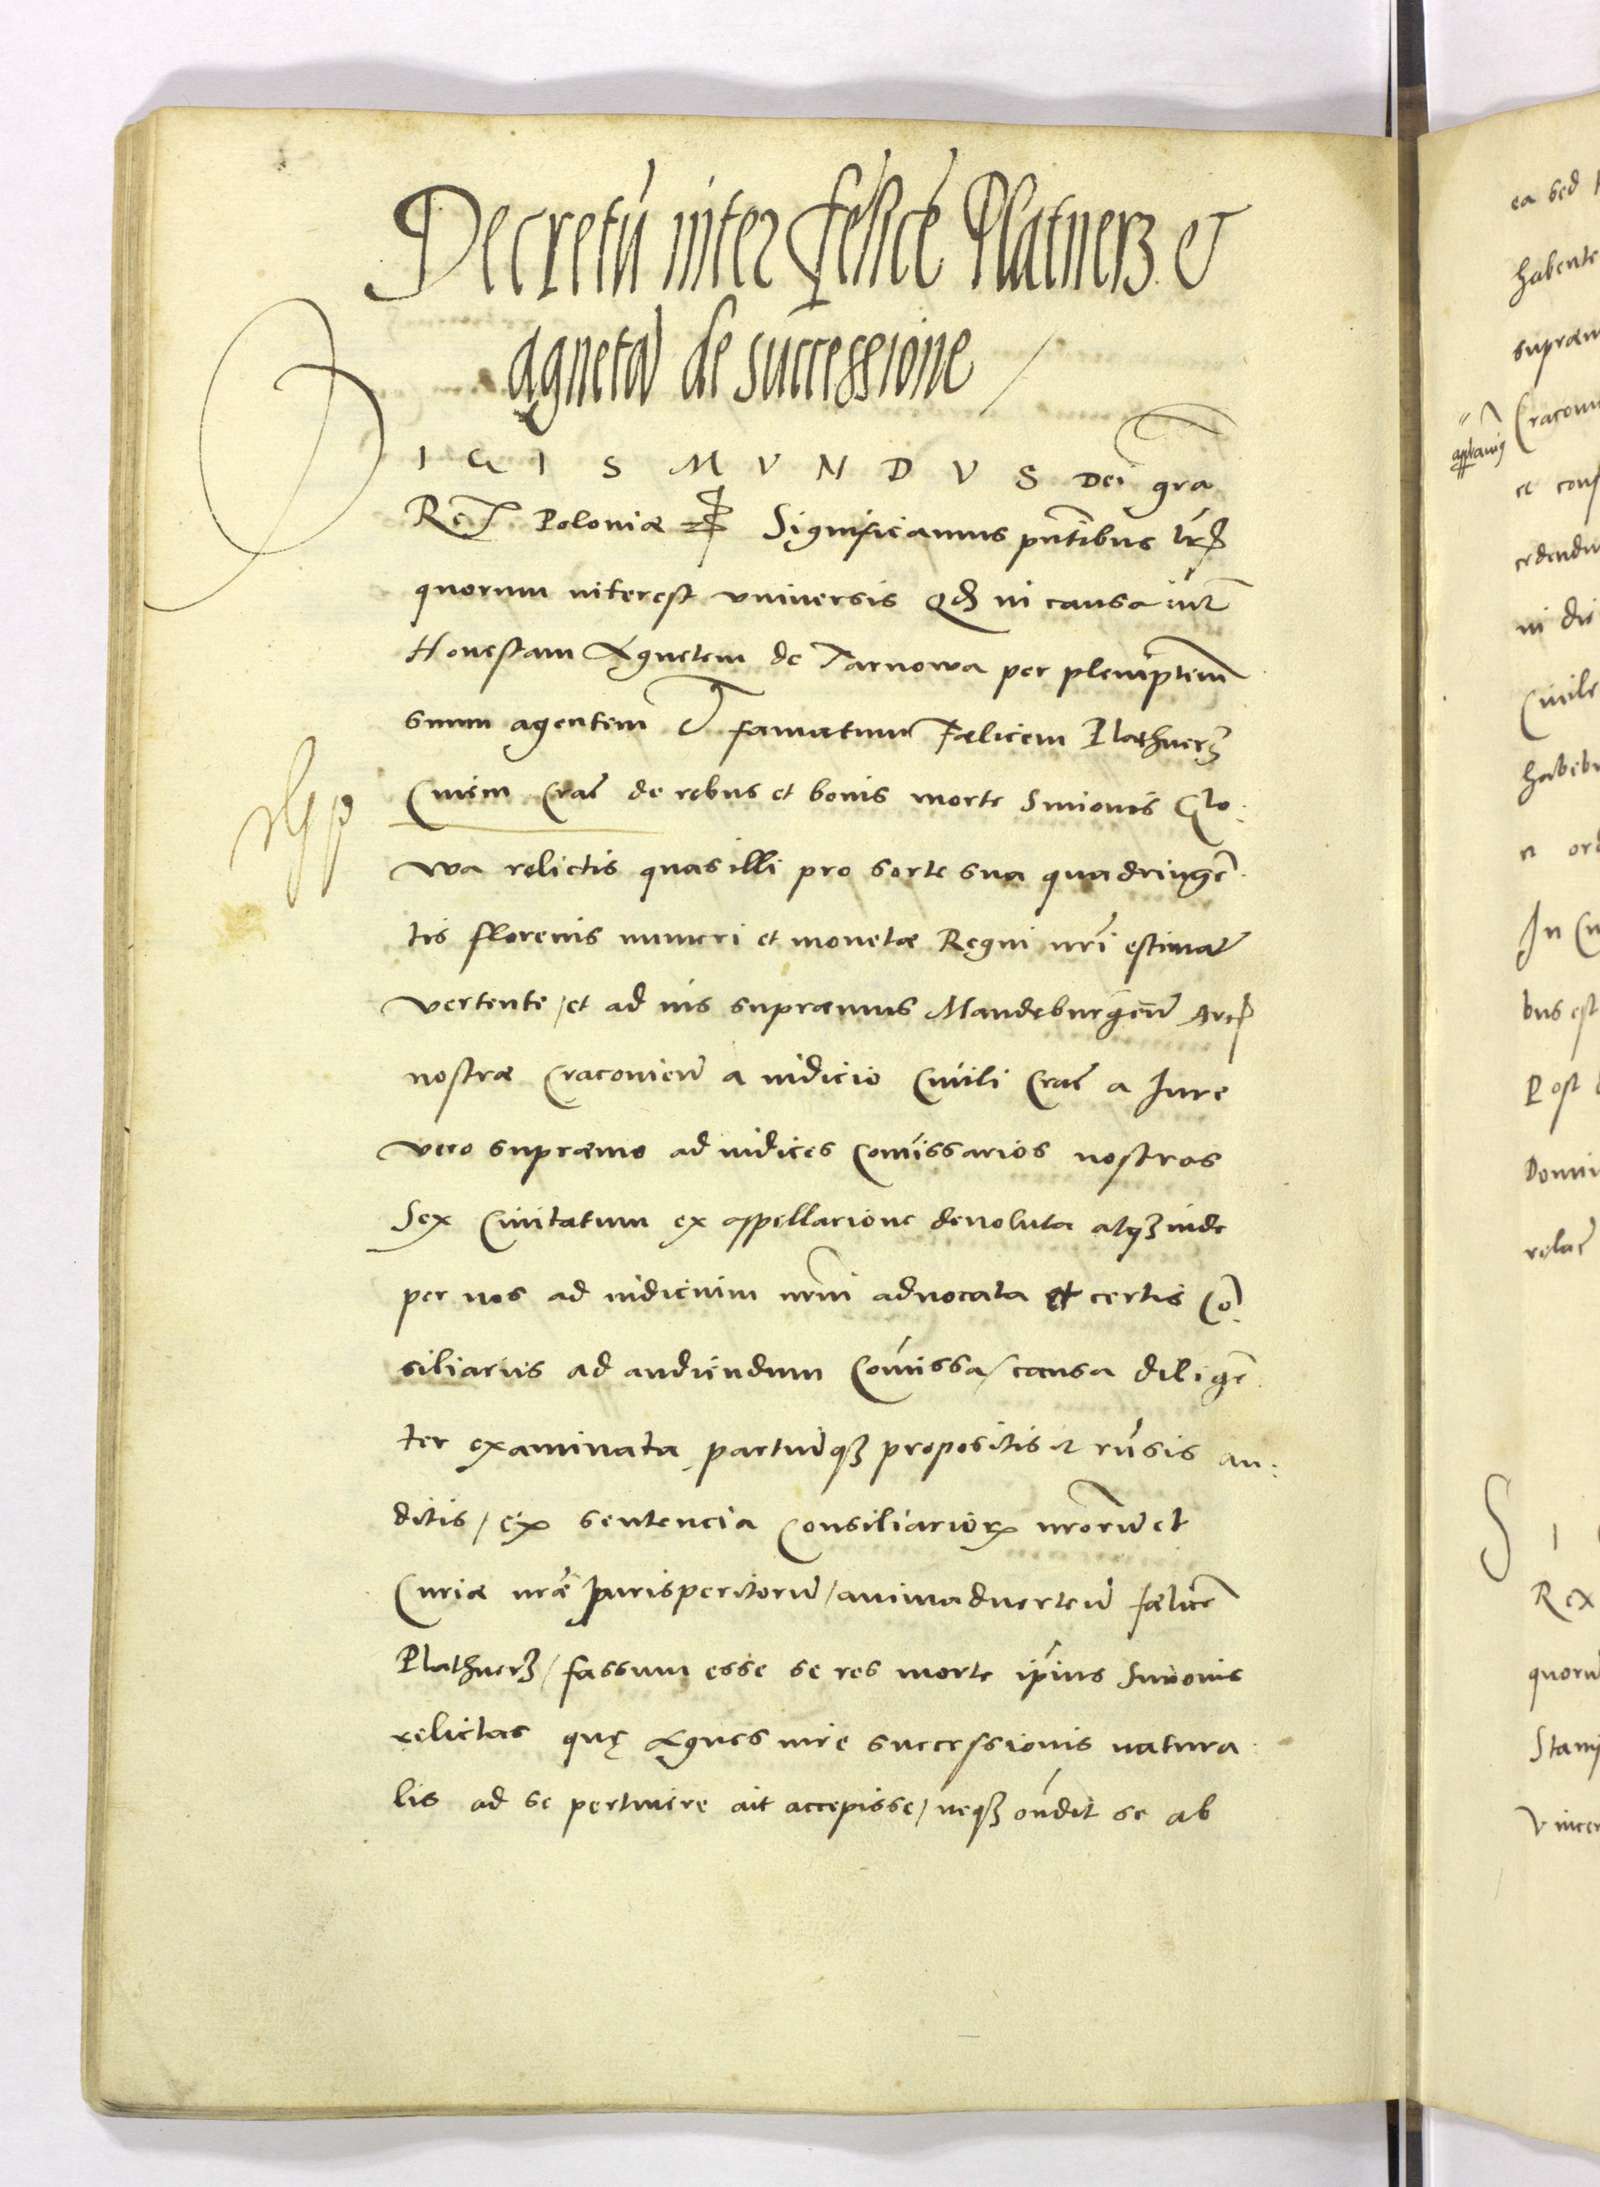 Decretū inter felicē Platnerz et
agnetā de successione
SIGISMVNDVS Dei gra
Rex Poloniæ Significamus pntibus lris
quorum interest vniuersis Qd in causa intr
Honestam Agnetem de Tarnowa per plenipotem
suum agentem et famatum Fælicem Plathnerz
Ciuem Crac de rebus et bonis morte Simonis Glo:
wa relictis quas illi pro sorte sua quadringē
tis florenis numeri et monetæ Regni nri estimat
vertente, et ad ius supræmus Maydeburgen Arcis
nostræ Cracovien a iudicio Ciuili Crac a Jure
vero supræmo ad iudices Comissarios nostros
Sex Ciuitatum ex appellacione deuoluta atqz inde
per nos ad iudicium nrm aduocata et certis Co:
siliariis ad audiendum Comissa, causa diligē
ter examinata partiūqz propositis et rnsis au:
ditis, ex sentencia Consiliarior nrorū et
Curiæ nræ Jurisperitorū, animaduerten fælicē
Plathnerz, fassum esse se res morte ipius Simonis
relictas quę Agnes iure successionis natura
lis ad se pertinere ait accepisse, neqz ondit se ab
ea sed
habente
supræm
Cracoui
et cons
in
Ciuile
habeb
et ord
In
bus est
Post
Domi
relac
S I
Rex
quoru
Stani
Vincen